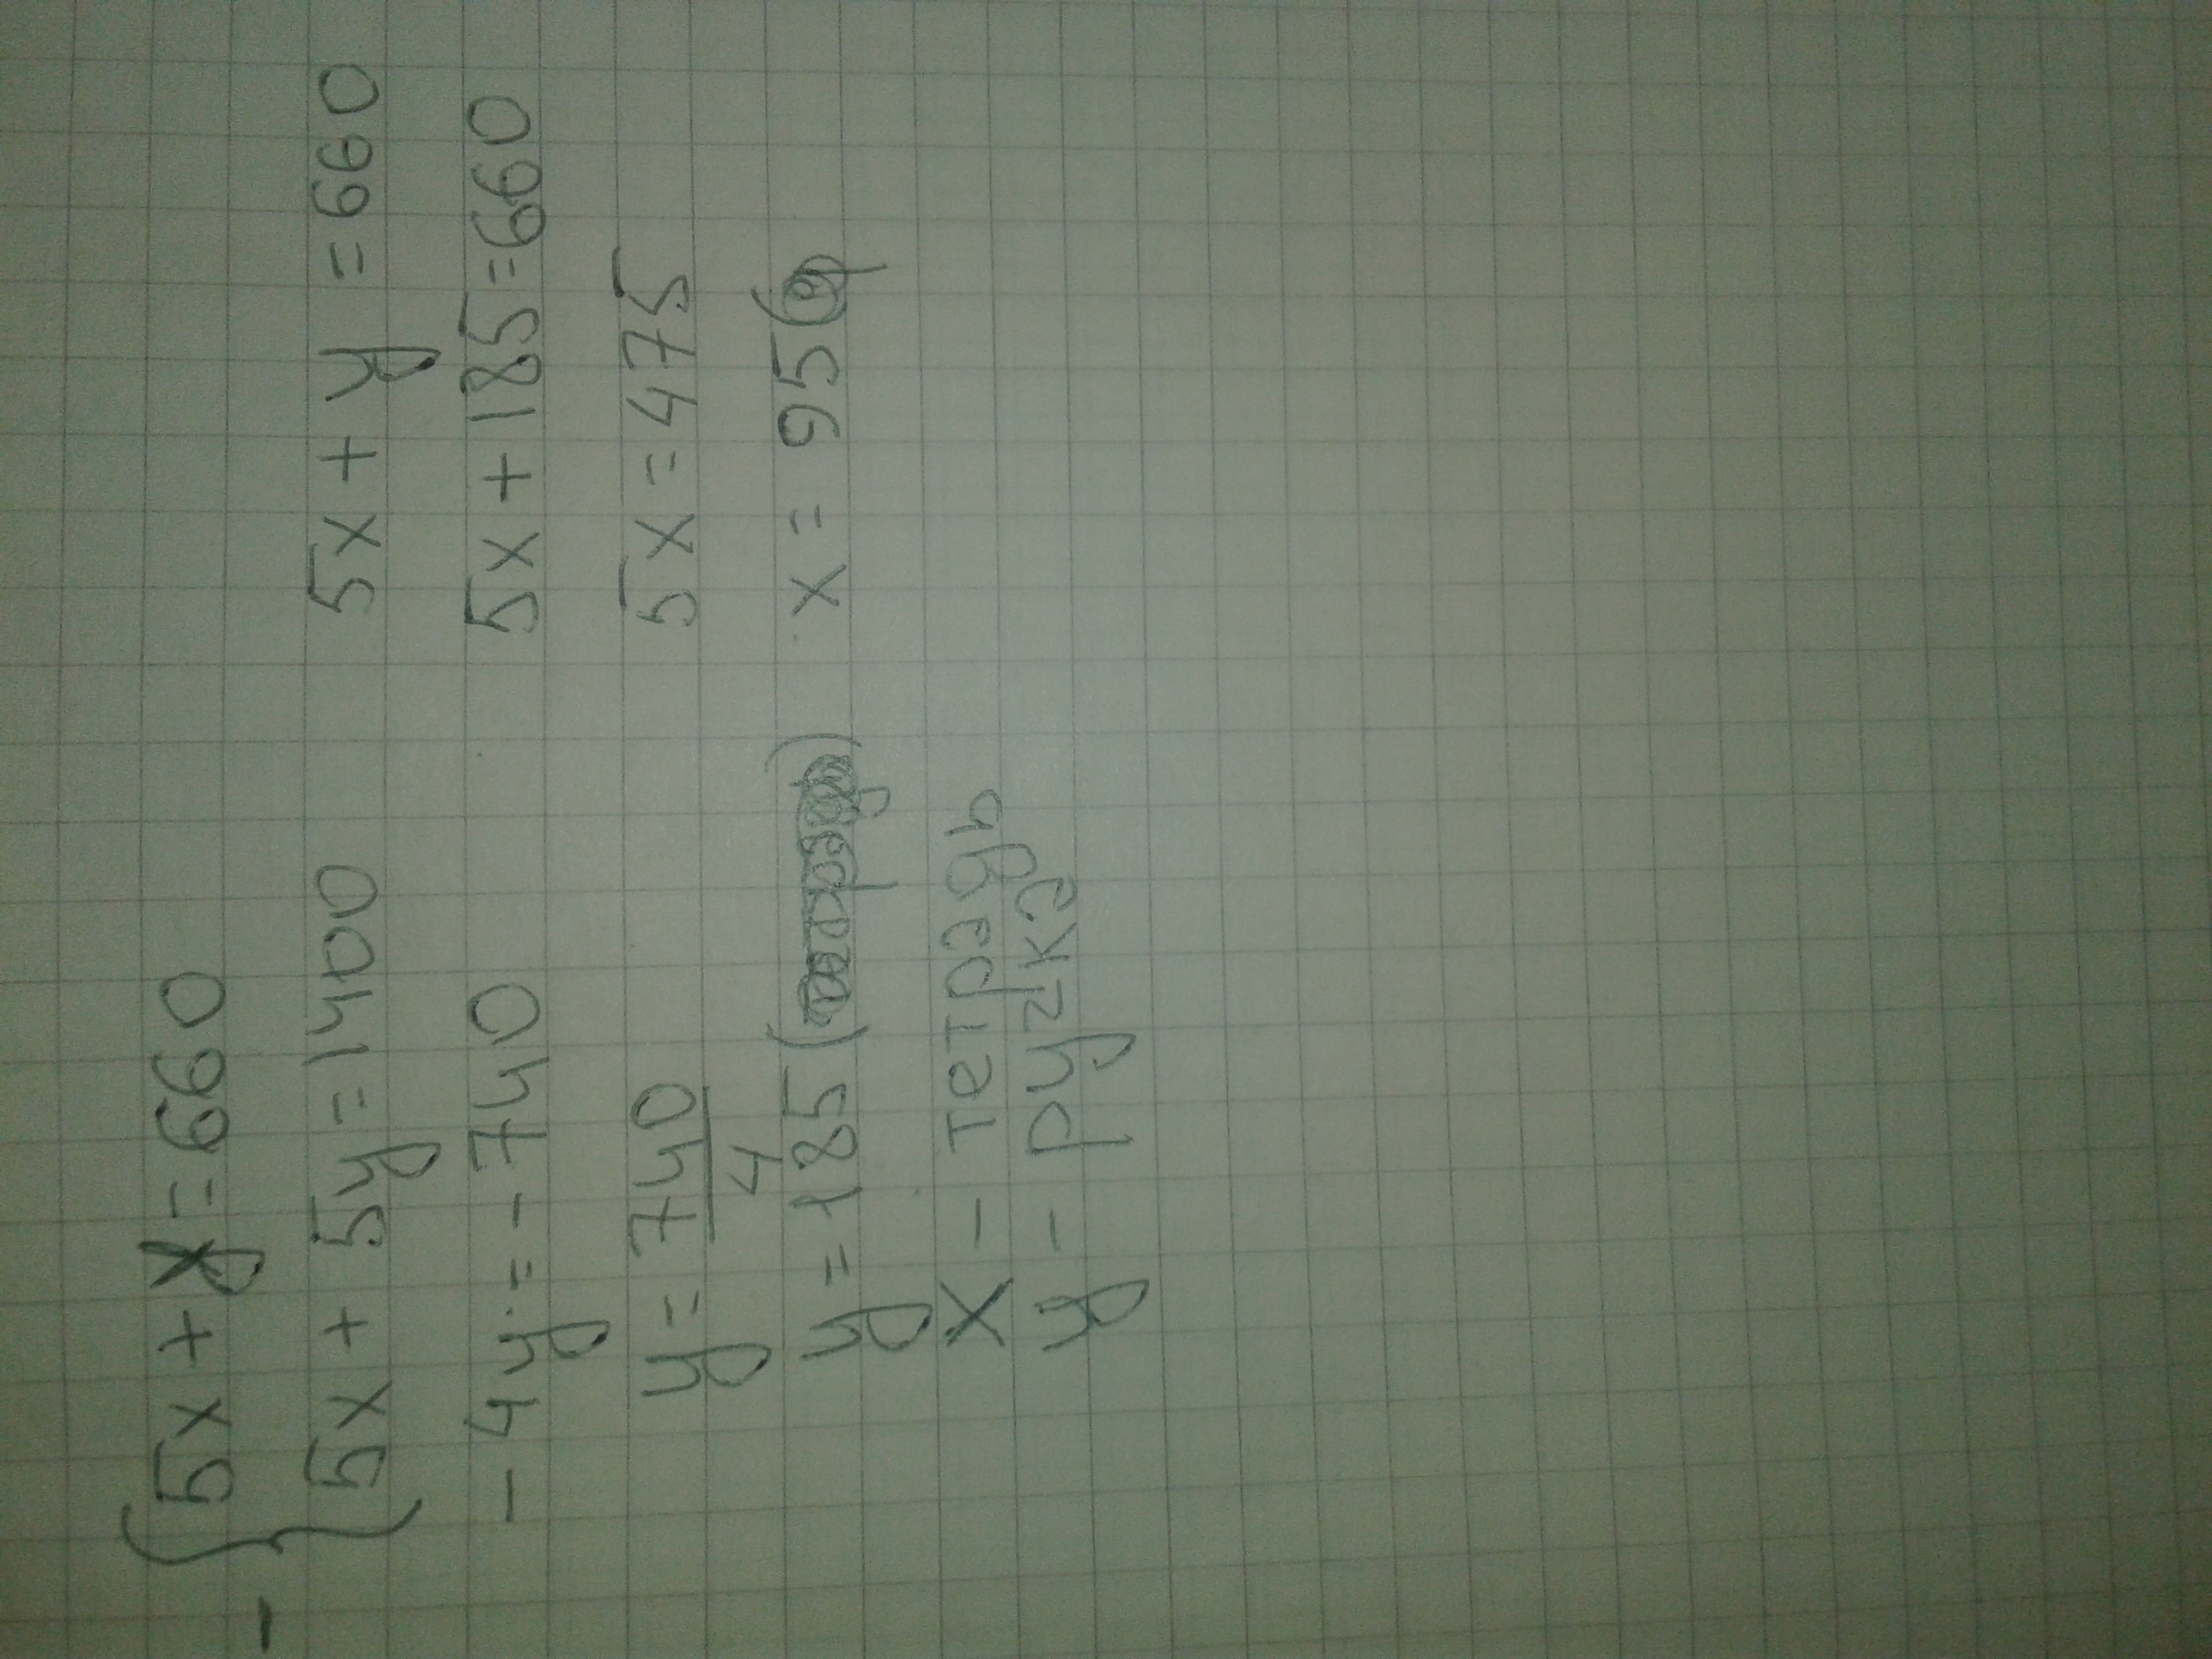 - { 5x + y = 660
5x + 5y = 1400
- 4y = - 740
y = 740
4
y = 185 ( )
x - тетрадь
y - ручка
5x + y = 660
5x + 185 = 660
5x = 475
x = 95 (